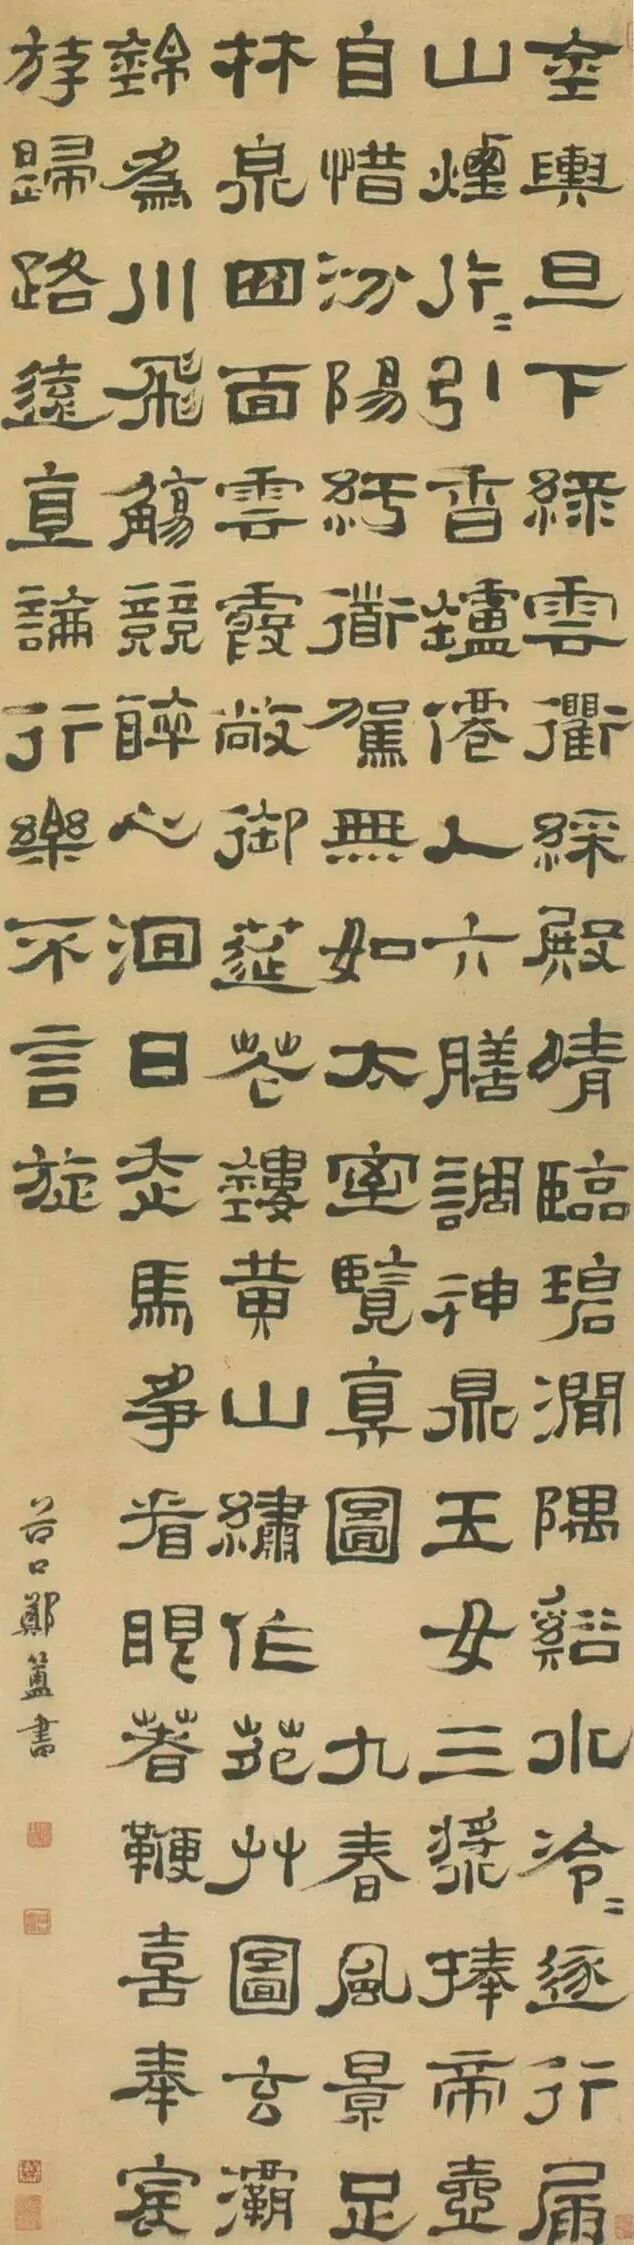 金輿旦下綠雲衢綵殿晴臨碧澗隅谿水泠〻逐行屚
山煙片〻引香鑪僊人六膳調神鼎玉女三漿捧帝壺
自惜汾陽紆衜駕無如太室覽真圖 九春風景足
林泉四面雲霞敞御筵花鏤黃山繡作苑艸圖玄灞
錦為川飛觴競醉心洄日走馬爭看眼著鞭喜奉宸
斿歸路遠直論行樂不言旋
谷口鄭簠書